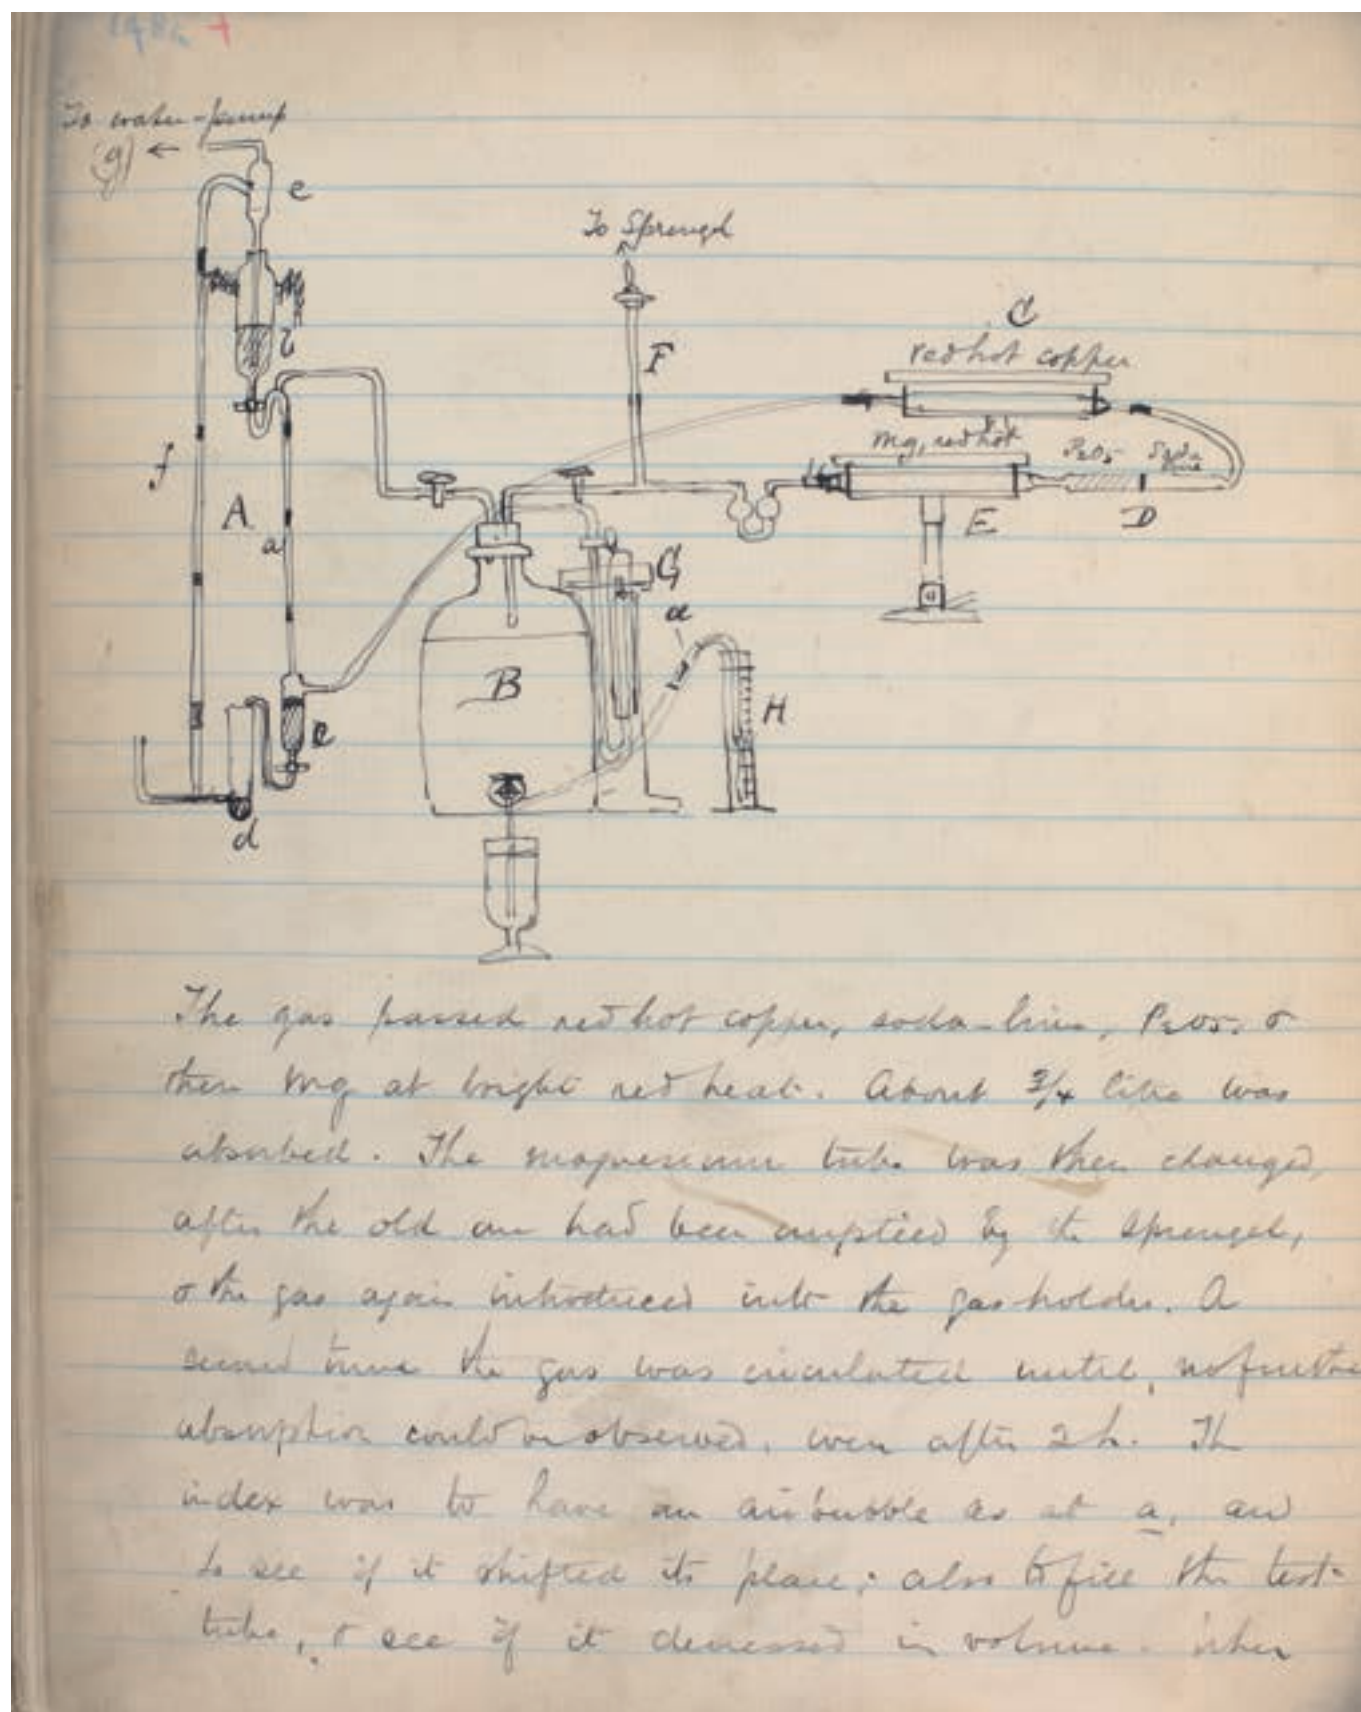 To water-pump
(g) ←
e
To Sprengel
b
C
red hot copper
F
Mg, red hot
P2O5
Soda
lime
f
A
a
E
D
G
a
B
H
e
d
The gas passed red hot copper, soda-lime, P2O5, &
then Mg at bright red heat. About 3/4 litre was
absorbed. The magnesium tube was then changed,
after the old one had been emptied by the Sprengel,
& the gas again introduced into the gas-holder. A
second time the gas was circulated until, no further
absorption could be observed, even after 2 h. The
index was to have an air bubble as at a, and
to see if it shifted its place; also to fill the test-
tube, & see if it decreased in volume. When